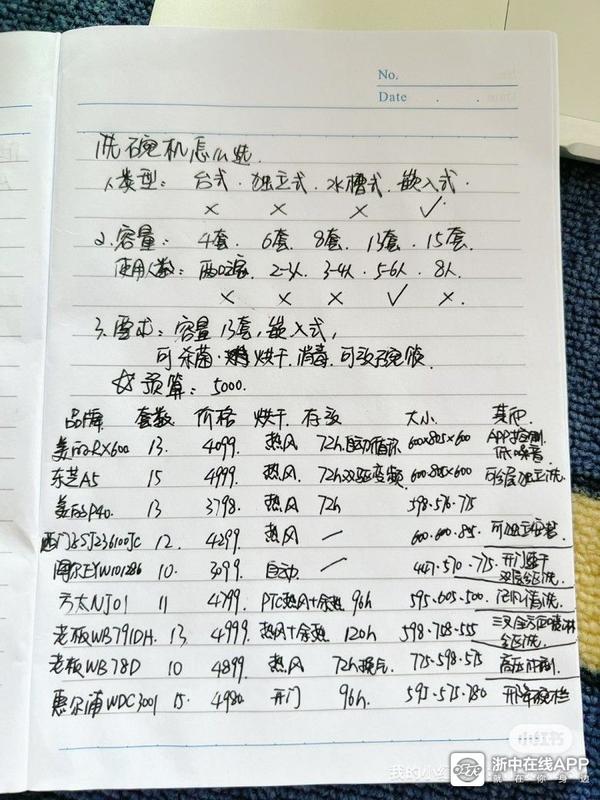 No.
Date
洗碗机怎么选.
1.类型: 台式. 独立式. 水槽式. 嵌入式.
× × × ✓
2.容量: 4套. 6套. 8套. 13套. 15套.
使用人数: 两口之家. 2-3人. 3-4人. 5-6人. 8人.
× × × ✓ ×.
3.需求: 容量13套, 嵌入式,
可杀菌. 烘干. 消毒. 可放碗筷
☆预算: 5000.
品牌 套数 价格 烘干 存放 大小. 其他.
美的RX600 13. 4099. 热风 72h自动循环 600×805×600 APP控制. 低噪音
东芝A5 15 4999. 热风 72h双驱变频 600×805×600 可分层独立洗.
美的P40. 13 3798. 热风 72h 598.576.775
西门子SJ236100JC 12. 4299. 热风 — 600.600.845. 可独立安装
海尔EYW10286 10. 3099. 自动. — 447.570.775. 开门速干 双层全区洗.
方太NJ01 11 4799. PTC热风+余热 96h 595.605.500. 记忆清洗.
老板WB791DH. 13 4999. 热风+余热 120h 598.768.555 三叉全方位喷淋 全区洗.
老板WB78D 10 4899. 热风 72h换气. 775.598.575 高压冲刷.
惠尔浦WDC3001 15. 4980. 开门 96h. 595.575.780
小红书
我的小红
浙中在线APP
就在你身边